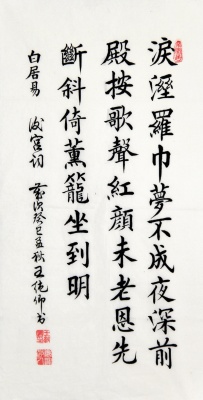 淚溼羅巾夢不成夜深前
殿按歌聲紅顏未老恩先
斷斜倚薰籠坐到明
白居易 後宮詞 歲次癸巳孟秋王德仰书